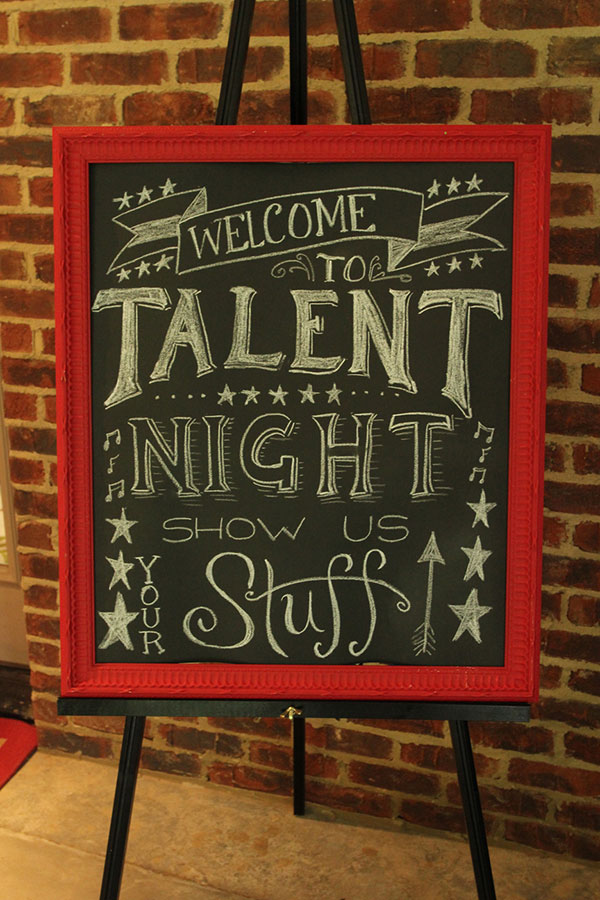 WELCOME
TO
TALENT
NIGHT
SHOW US
YOUR
Stuff